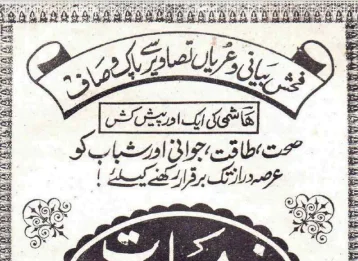 فحش بیانی و عریاں تصاویر سے پاک و صاف
ھاشمی کی ایک اور پیش کش
صحت، طاقت، جوانی اور شباب کو
عرصہ دراز تک برقرار رکھنے کیلئے!